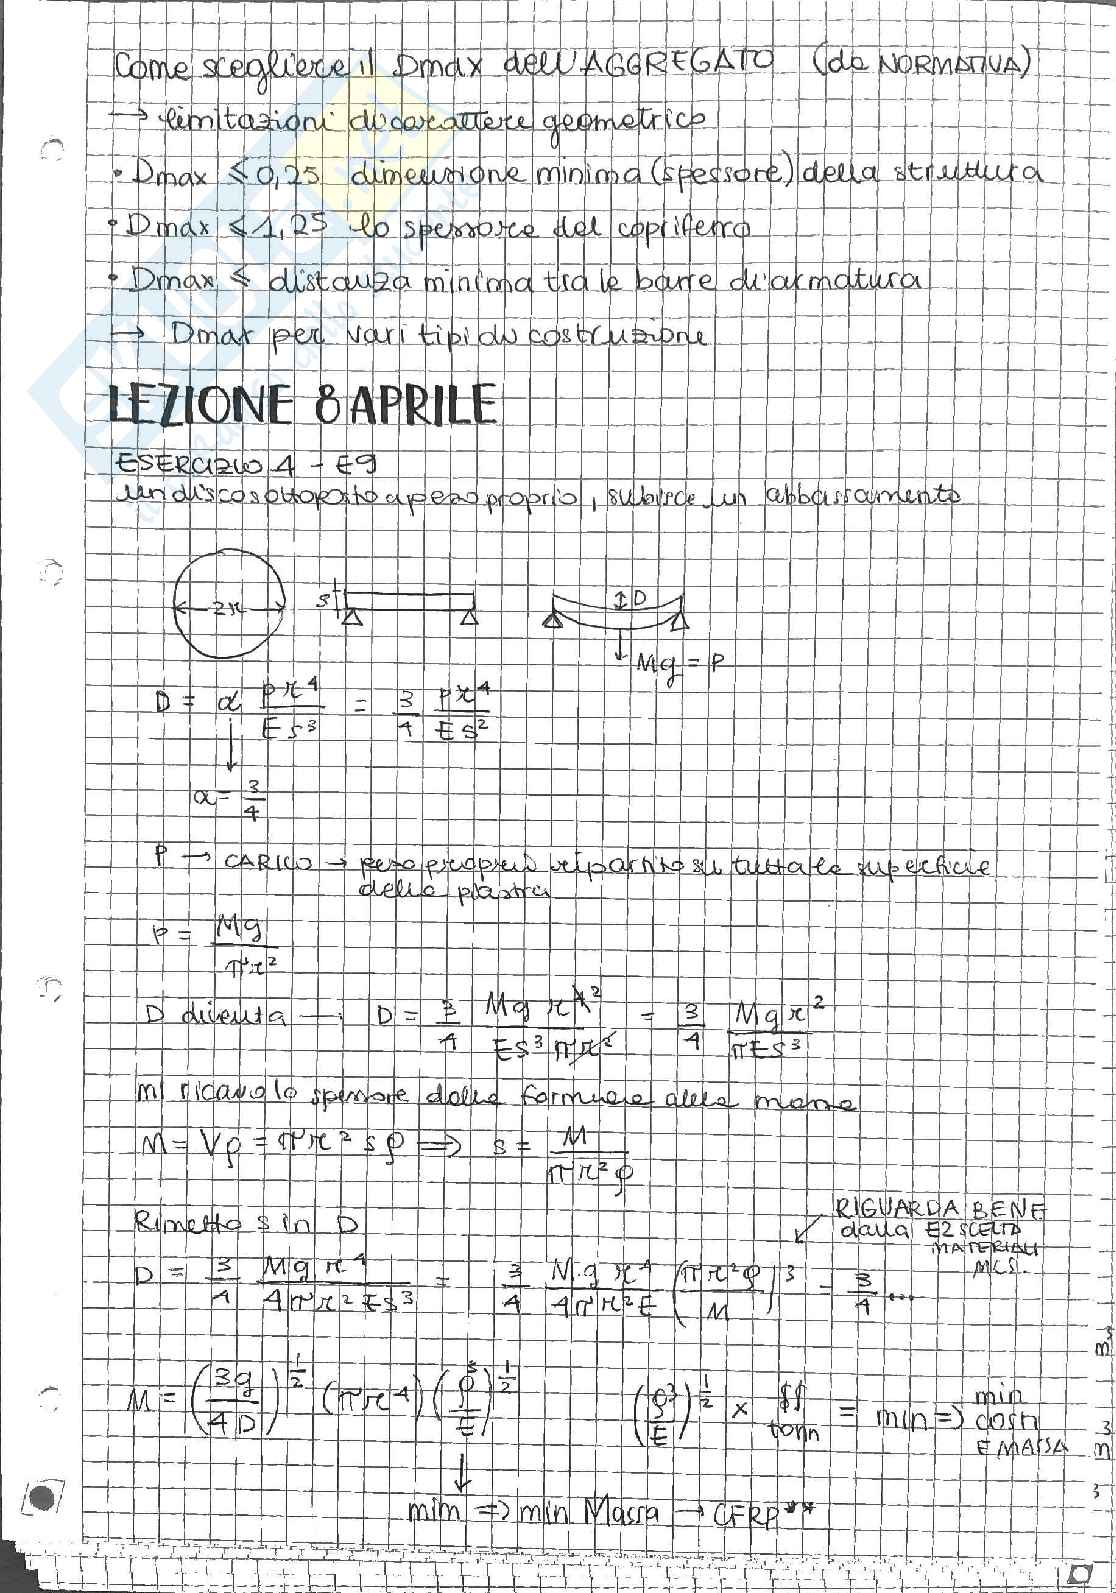 Come scegliere il Dmax dell'AGGREGATO (da NORMATIVA)
→ limitazioni di carattere geometrico
• Dmax ≤ 0,25 dimensione minima (spessore) della struttura
• Dmax ≤ 1,25 lo spessore del copriferro
• Dmax ≤ distanza minima tra le barre di armatura
→ Dmax per vari tipi di costruzione
LEZIONE 8 APRILE
ESERCIZIO 4 - E9
un disco sottoposto a peso proprio, subisce un abbassamento
2r
S
D
Mg = P
D = α pr⁴/Es³ = 3/4 pr⁴/Es²
α = 3/4
P → CARICO → peso proprio ripartito su tutta la superficie
della piastra
P = Mg/πr²
D diventa → D = 3/4 Mg r⁴²/Es³πr² = 3/4 Mgr²/πEs³
mi ricavo lo spessore dalla formula della massa
M = Vρ = πr²sρ ⇒ s = M/πr²ρ
Rimetto s in D
RIGUARDA BENE
dalla E2 SCELTA
MATERIALI
MCS.
D = 3/4 Mgr⁴/4πr²Es³ = 3/4 Mgr⁴/4πr²E (πr²ρ/M)³ = 3/4 ...
M = (3g/4D)^1/2 (πr⁴) (ρ³/E)^1/2
(ρ³/E)^1/2 × $$/tonn = min ⇒ min costi E MASSA
min ⇒ min Massa → CFRP**